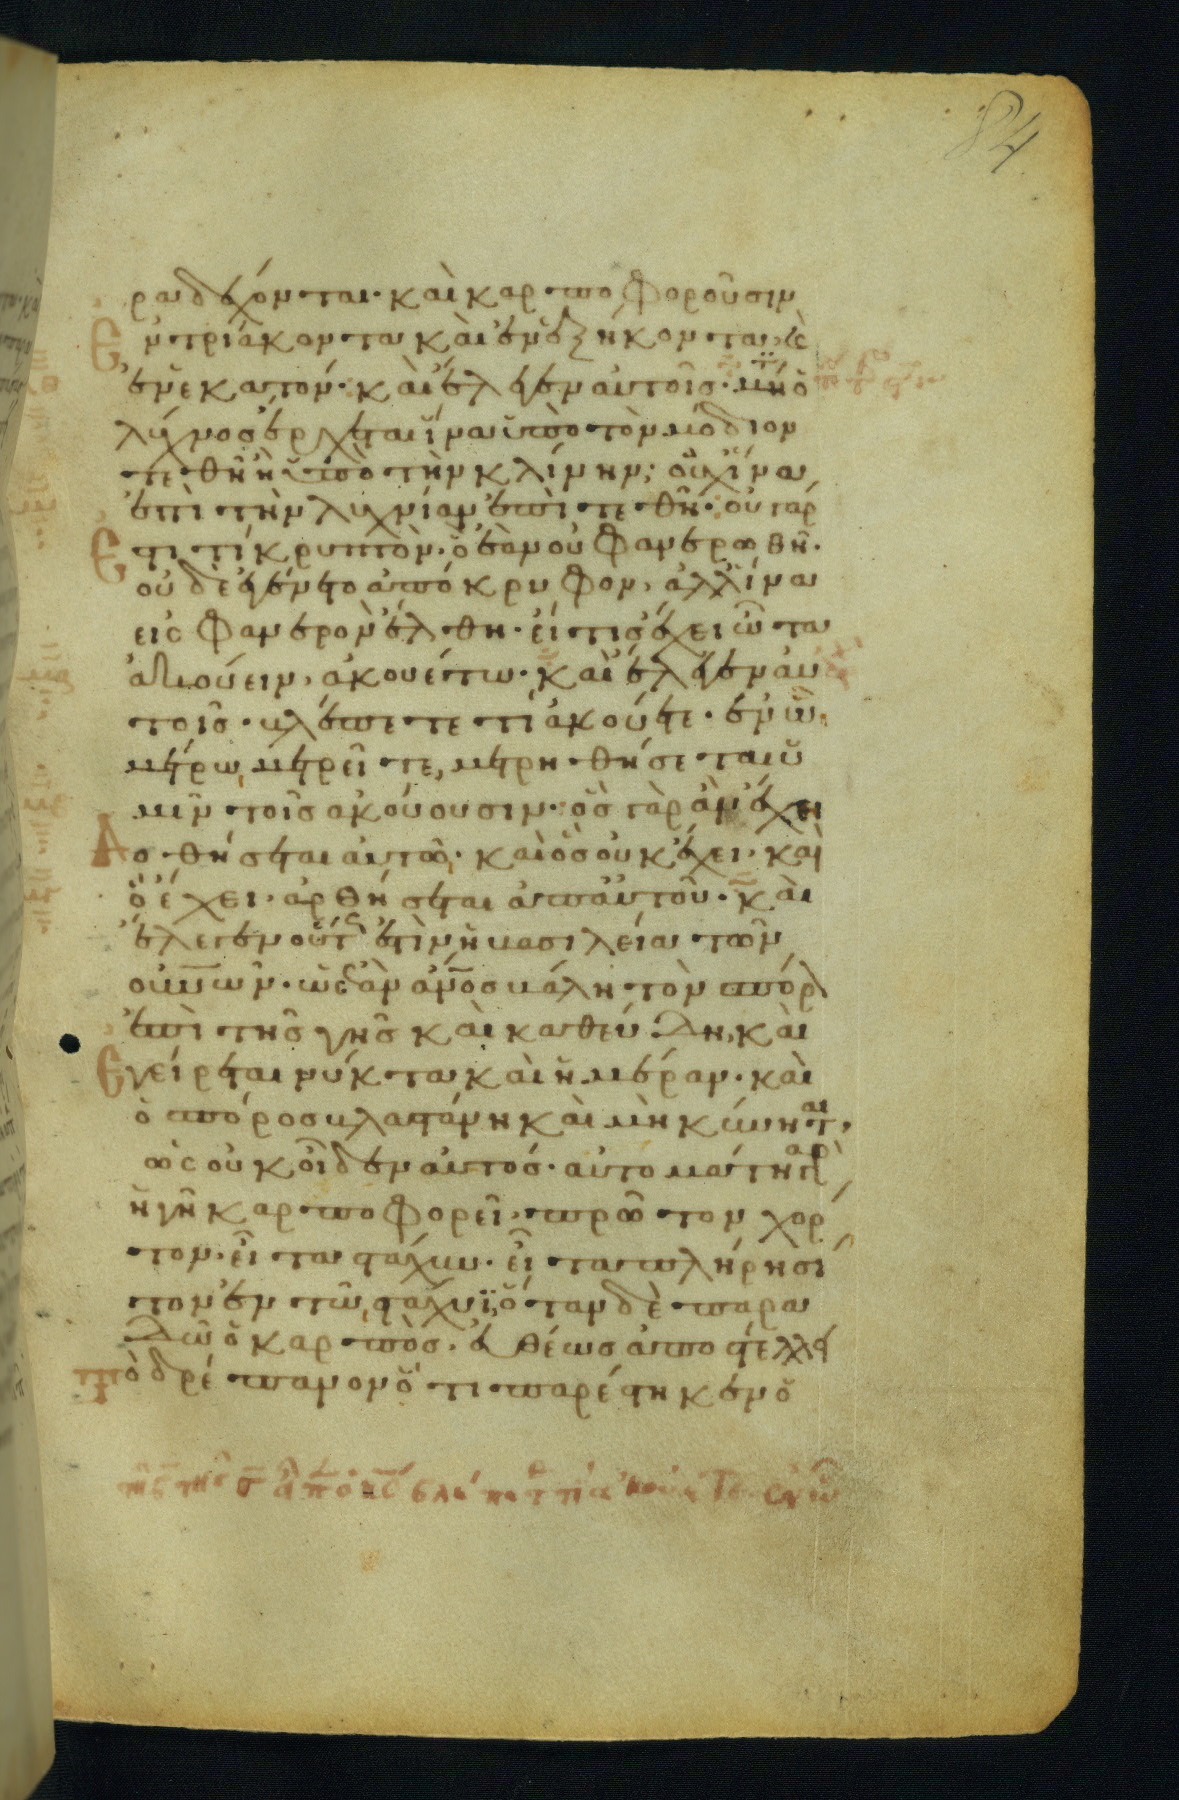 84
ραδέχονται· καὶ καρποφοροῦσιν
Ἐν τριάκοντα καὶ ἐν ἑξήκοντα, κὲ
ἐν ἑκατόν· καὶ ἔλεγεν αὐτοῖς· μή τι ὁ
λύχνος ἔρχεται ἵνα ὑπὸ τὸν μόδιον
τεθῆ ἢ ὑπὸ τὴν κλίνην; οὐχ ἵνα
ἐπὶ τὴν λυχνίαν ἐπιτεθῆ· οὐ γάρ
Ἐστι τί κρυπτὸν· ὃ ἐὰν οὐ φανερωθῆ·
οὐδὲ ἐγένετο ἀπόκρυφον, ἀλλ' ἵνα
εἰς φανερὸν ἔλθη· εἴ τις ἔχει ὦτα
ἀκούειν, ἀκουέτω· καὶ ἔλεγεν αὐ
τοῖς· βλέπετε τί ἀκούετε· ἐν ὧ
μέτρω μετρεῖτε, μετρηθήσεται ὑ
μῖν τοῖς ἀκούουσιν· ὃς γὰρ ἂν ἔχει
Δοθήσεται αὐτῶ· καὶ ὃς οὐκ ἔχει· καὶ
ὃ ἔχει· ἀρθήσεται ἀπ' αὐτοῦ· καὶ
ἔλεγεν οὕτως ἐστὶν ἡ βασιλεία τῶν
οὐνῶν· ὡς ἐὰν ἄνος βάλη τὸν σπόρον
ἐπὶ τῆς γῆς καὶ καθεύδη, καὶ
Ἐγείρεται νύκτα καὶ ἡμέραν· καὶ
ὁ σπόρος βλαστάνη καὶ μηκύνηται,
ὡς οὐκ οἶδεν αὐτός· αὐτομάτη γὰρ
ἡ γῆ καρποφορεῖ· πρῶτον χόρ
τον· εἶτα στάχυν· εἶτα πλήρη σί
τον ἐν τῶ στάχυϊ, ὅταν δὲ παρα
δῶ ὁ καρπὸς· εὐθέως ἀποστέλλει
Τὸ δρέπανον ὅτι παρέστηκεν ὁ